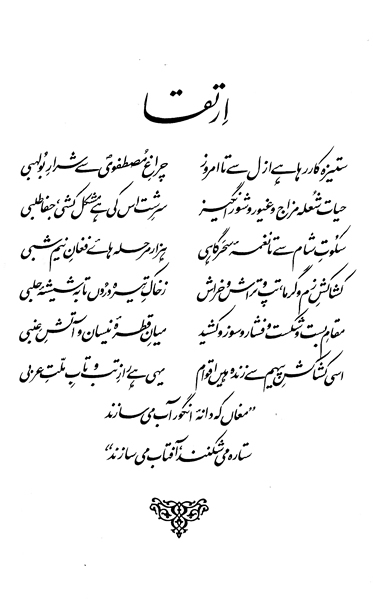 اِرتقا
ستیزہ کار رہا ہے ازل سے تا امروز چراغِ مُصطفویؐ سے شرارِ بُولہبی
حیات شُعلہ مزاج و غیور و شور انگیز سرشت اس کی ہے مشکل کشی، جفا طلبی
سکُوتِ شام سے تا نغمۂ سحَر گاہی ہزار مرحلہ ہائے فغانِ نیم شبی
کشاکشِ زم و گرما، تپ و تراش و خراش ز خاکِ تِیرہ درُوں تا بہ شیشۂ حلَبی
مقامِ بست و شکست و فشار و سوز و کشید میانِ قطرۂ نیسان و آتشِ عِنبی
اسی کشاکشِ پیہم سے زندہ ہیں اقوام یہی ہے رازِ تب و تابِ مِلّتِ عربی
“مغاں کہ دانۂ انگور آب می سازند
ستارہ می شکنند، آفتاب می سازند”